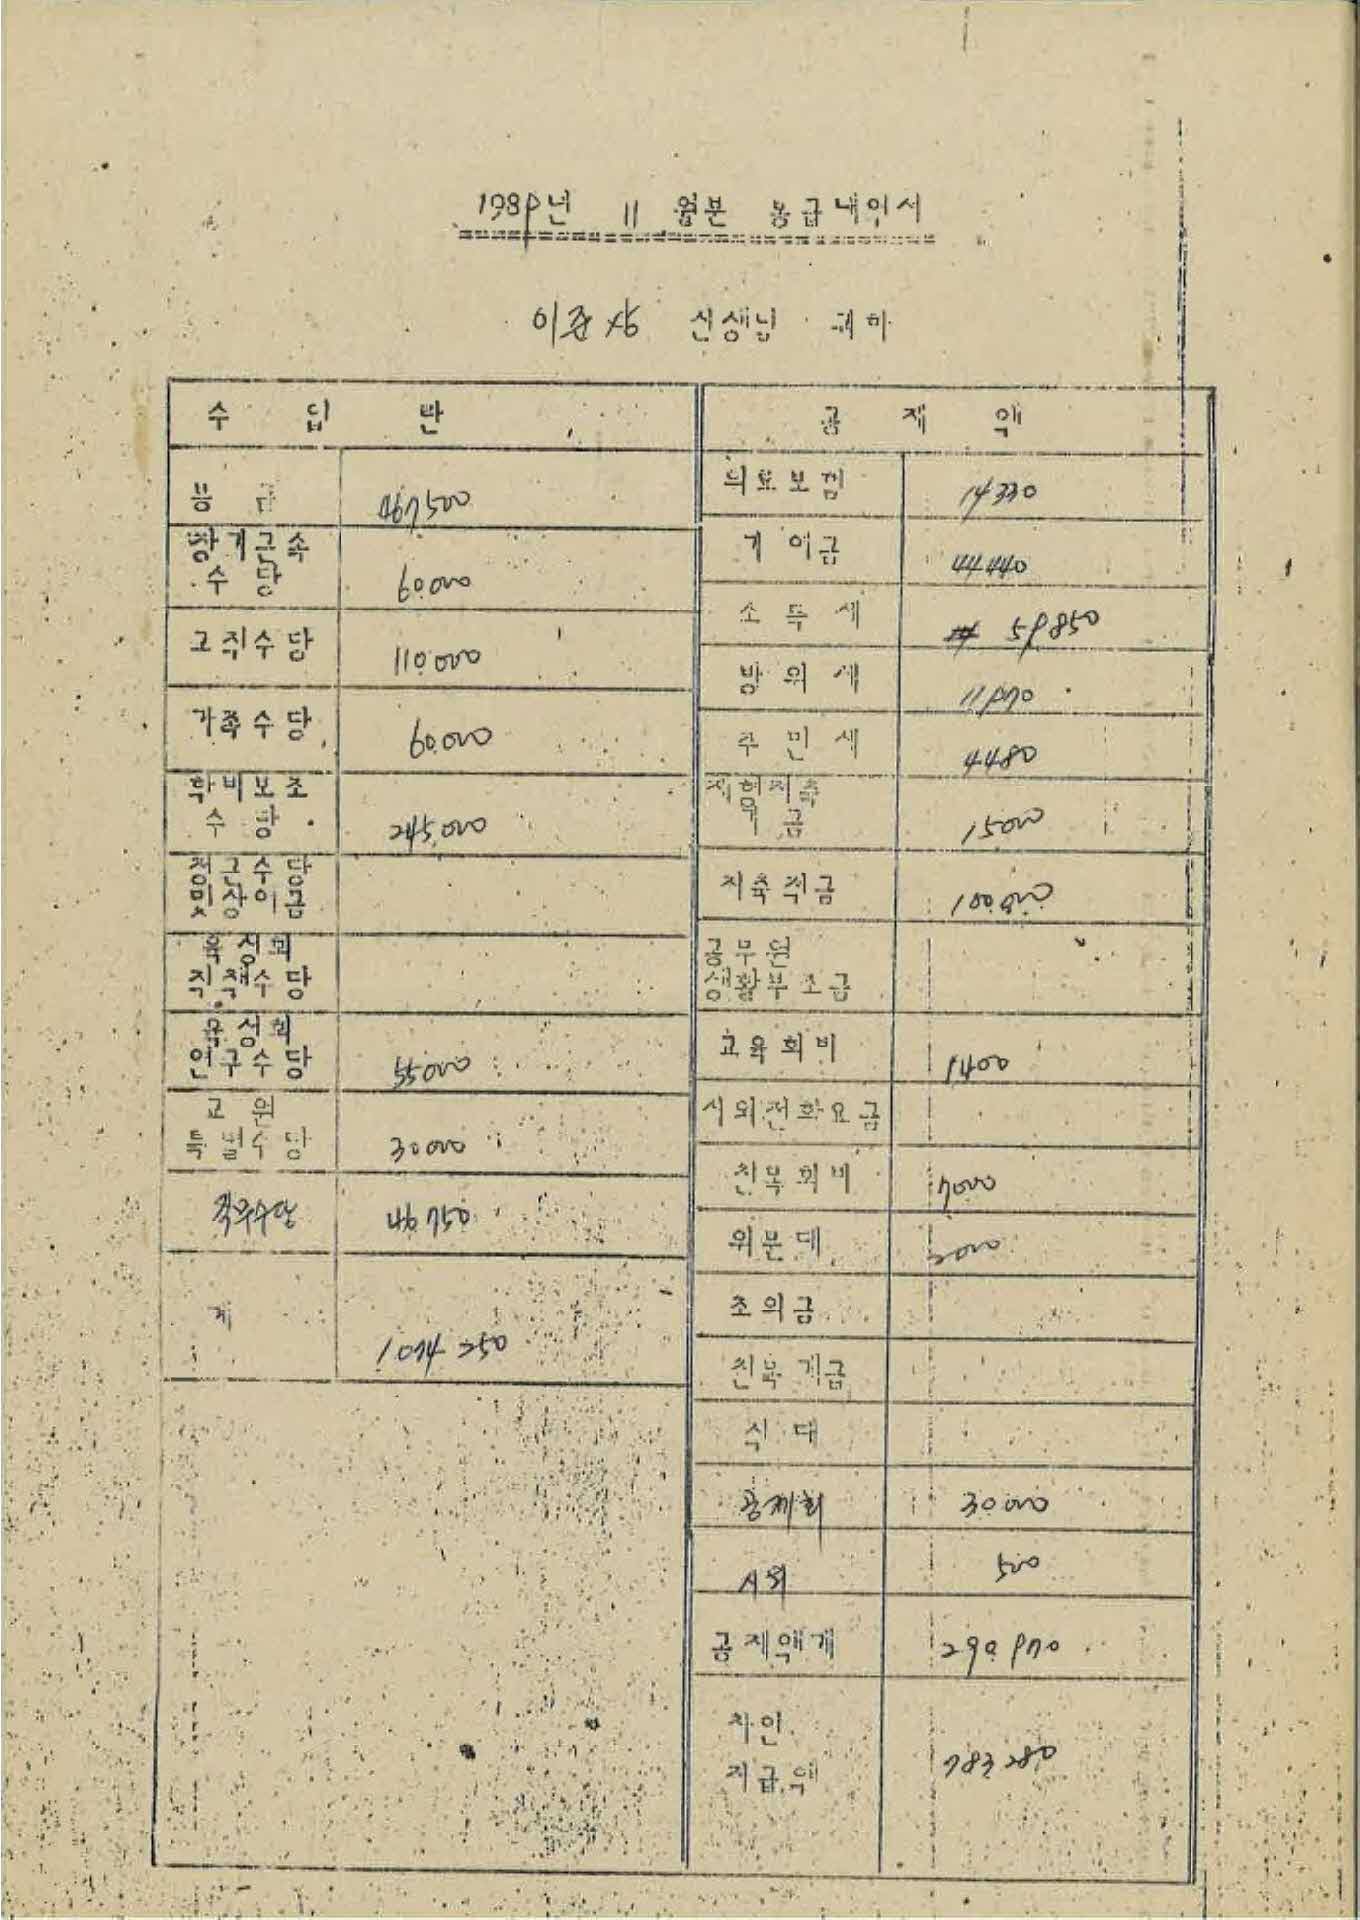 1989년 11 월분 봉급내역서
이준상 선생님 귀하
수 입 란
공 제 액
봉 급 467500
장기근속
수 당 60,000
교직수당 110.000
가족수당 60.000
학비보조
수 당 245,000
정근수당
및상여금
육성회
직책수당
육성회
연구수당 55000
교 원
특별수당 30000
직무수당 46750
계 1074250
의료보험 14330
기여금 44440
소 득 세 59850
방 위 세 11970
주 민 세 4480
15000
저축적금 100,000
공무원
생활부조금
교육회비 1400
시외전화요금
친목회비 7000
위문대 2000
조의금
친목계금
식 대
공제회 30000
시외 500
공제액계 290.970
차인
지급액 783280